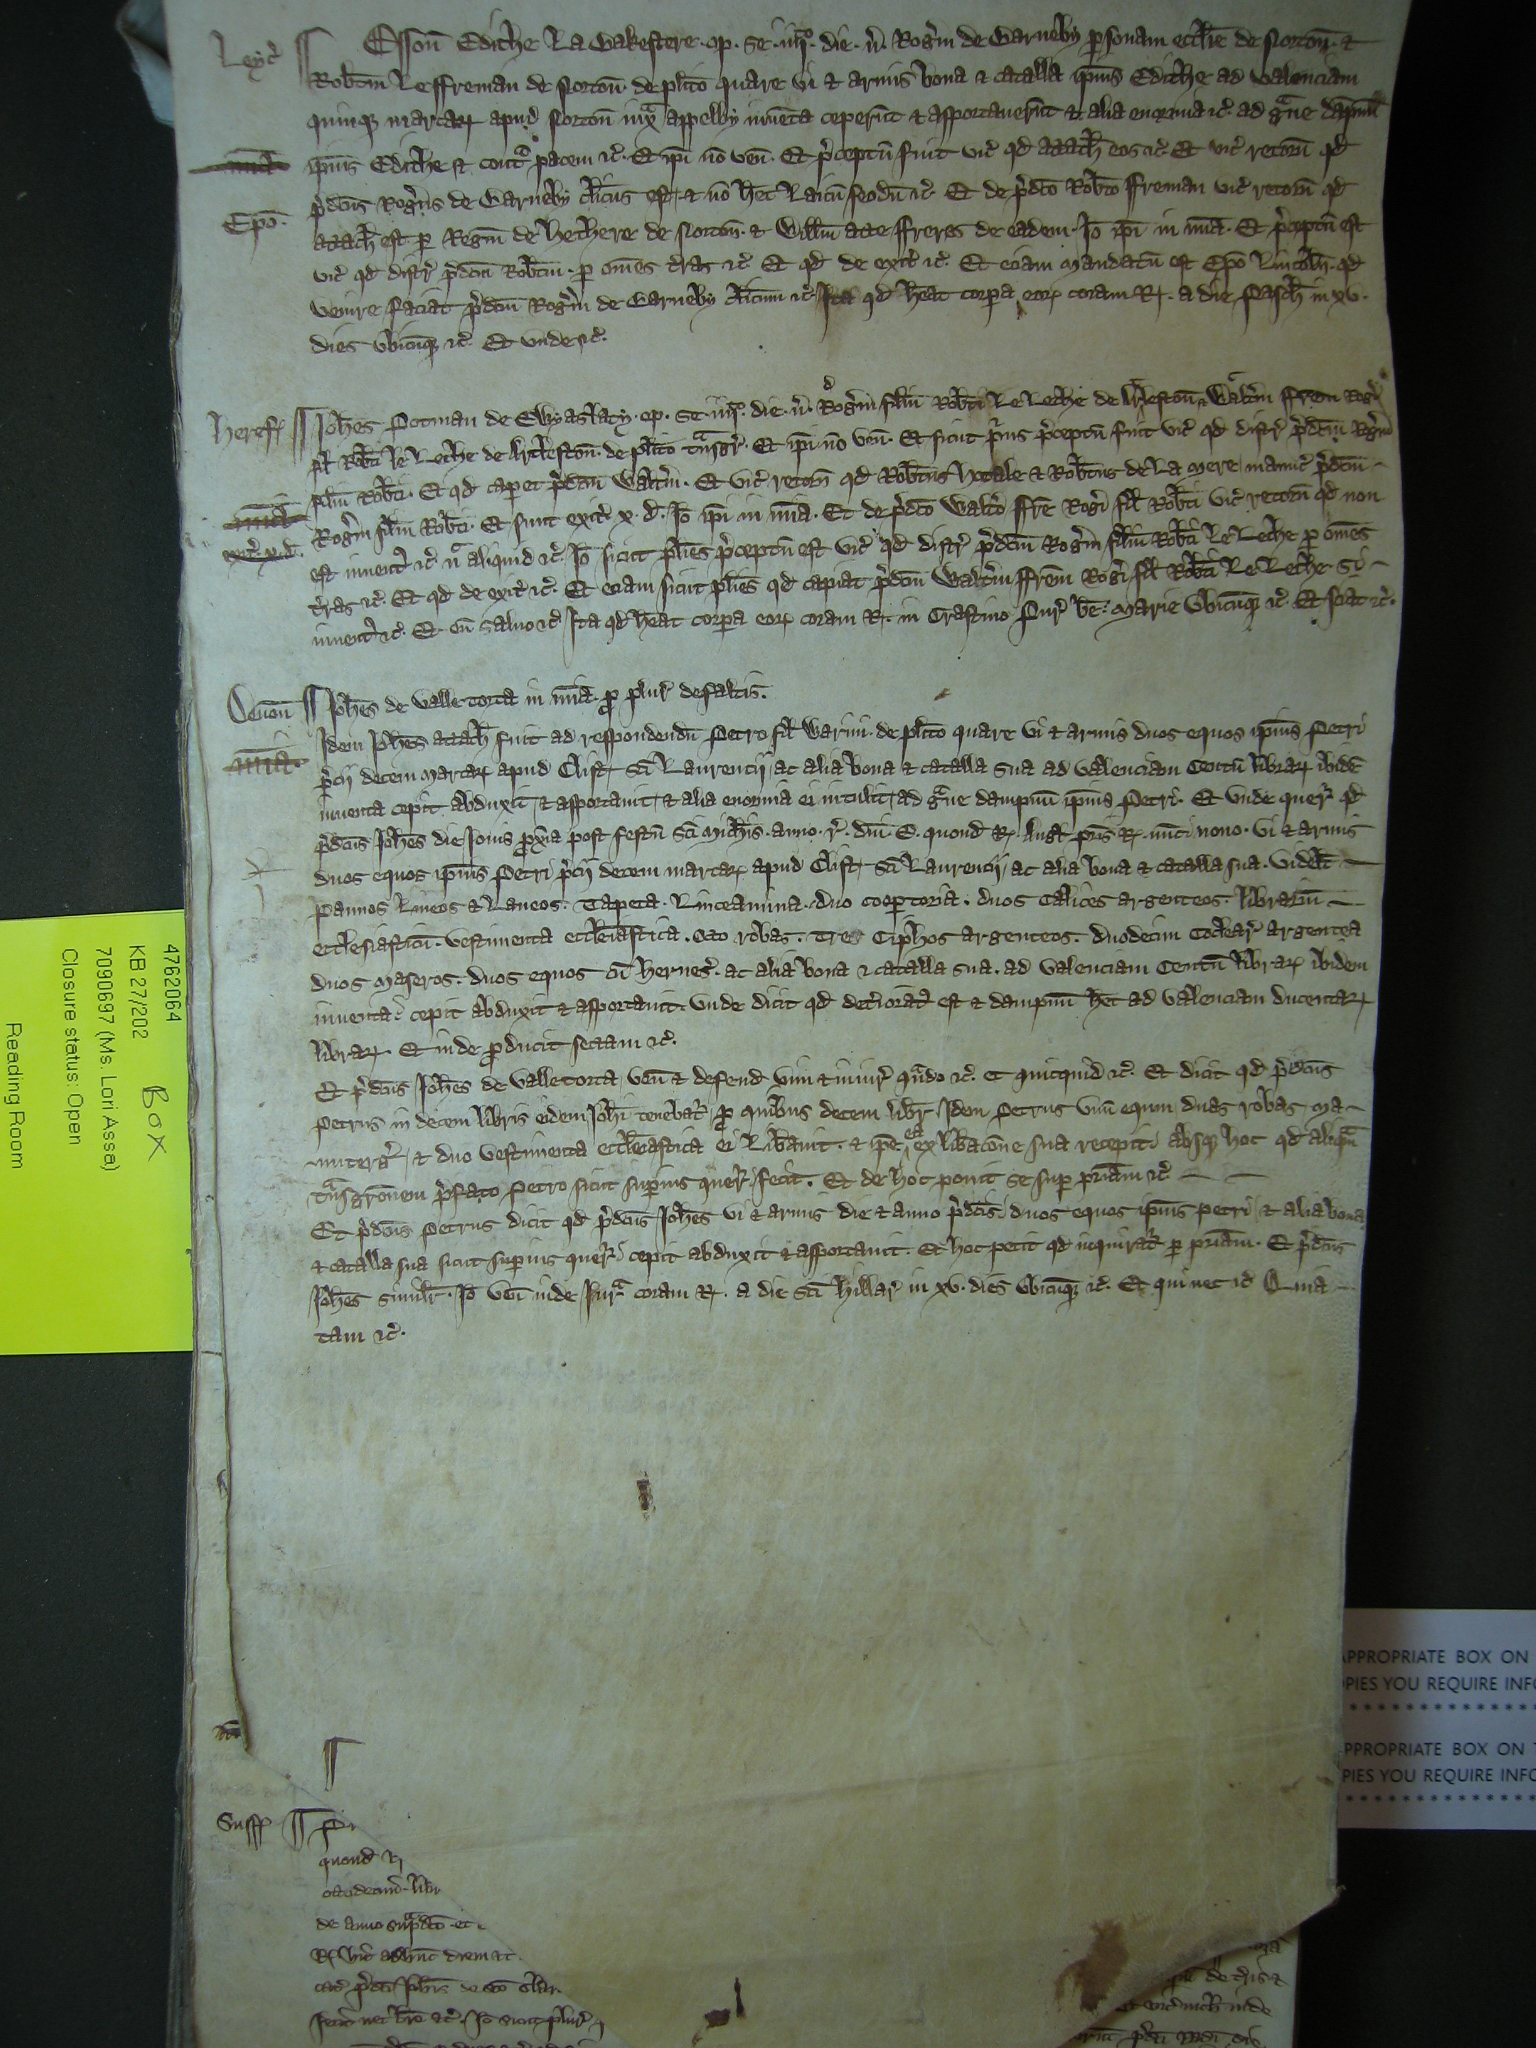 Leyc̃ Esson̄ Edithe La Wakestere op. se iiijᵒ. die. ṽ. Rog̃m de Barneby p̱sonam ecclīe de Norton̄ &
Rob̄tm Le ffreman de Norton̄ de pl̄ito quare vi & armis bona & catalla ip̄ius Edithe ad valenciam
quinqꝫ marcaꝝ apud Norton̄ iuxᵃ Appelby inuenta ceperūt & asportauerūt & alia enormia &c̃ ad gᵃue dāpnū
mīa ip̄ius Edithe & contᵃ pacem &c̃. Et ip̄i nō ven̄. Et p̃ceptū fuit vic̃ qd̄ attach̄ eos &c̃ Et vic̃ retorn̄ qd̄
Ep̄o. p̃dc̄us Rog̃us de Barneby cl̄icus est & nō het Laicū feodū &c̃ Et de p̃dc̄o Rob̄to ffreman vic̃ retorn̄ qd̄
attach̄ est p̱ Regin̄ de hethere de Norton̄ & Will̄m atte ffreres de eadem. Iō ip̄i in mīa. Et p̃ceptū est
vic̃ qd̄ distr̃ p̃dc̄m Rob̄tm p̱ om̄es t̃ras &c̃ Et qd̄ de exit̃ &c̃ Et eciam mandatū est Ep̄o Lincoln̄ qd̄
venire faciat p̃dc̄m Rog̃m de Barneby cl̄icum &c̃ Ita qd̄ heat corpa eoꝝ coram R. a die Pasch̄ in xv.
dies vbicūqꝫ &c̃ Et vnde &c̃.
Heref̃ Ioh̄es Potman de Ewyaslacy op. se iiijᵒ. die. ṽ. Rog̃m filiū Rob̄ti Le Leche de Arleston̄ & Walt̃m ffrēm Rog̃i
fil̄ Rob̄ti le Leche de Arleston̄ de pl̄ito tᵃnsgr̃. Et ip̄i nō ven̄. Et sicut pⁱus p̃ceptū fuit vic̃ qd̄ distr̃ p̃dc̄m Rog̃m
mīa filiū Rob̄ti. Et qd̄ caperet p̃dc̄m Walt̃m. Et vic̃ retorn̄ qd̄ Rob̄tus Hotale & Rob̄tus de La Mere manuc̃ p̃dc̄m
exit̃ x. d̄. Rog̃m filiū Rob̄ti. Et sunt exit̃ x. d̄. Iō ip̄i in mīa. Et de p̃dc̄o Walt̃o ffrē Rog̃i fil̄ Rob̄ti vic̃ retorn̄ qd̄ non
est inuent̃ &c̃ nᵃ aliquid &c̃ Iō sicut pl̄ies p̃ceptū est vic̃ qd̄ distr̃ p̃dc̄m Rog̃m filiū Rob̄ti Le Leche p̱ om̄es
t̃ras &c̃ Et qd̄ de exit̃ &c̃ Et eciam sicut pl̄ies qd̄ capiat p̃dc̄m Walt̃m ffrēm Rog̃i fil̄ Rob̄ti Le Leche si
inuent̃ &c̃ Et eū saluo &c̃ Ita qd̄ heat corpa eoꝝ coram R. in Crastino Pur̃ bē Marie vbicūqꝫ &c̃ Et sciat &c̃.
Deuon̄ Ioh̄es de Valletorta in mīa. pro plur̃ defaltis.
mīa Idem Ioh̄es attach̄ fuit ad respondendū Petro fil̄ Warini de pl̄ito quare vi & armis duos equos ip̄ius Petri
p̃cii decem marcaꝝ apud Clist Sc̄i Laurencij ac alia bona & catalla sua ad valenciam Centū libraꝝ ibidē
inuenta cepit abduxit & asportauit & alia enormia ei intulit ad gᵃue dampnū ip̄ius Petri. Et vnde quer̃ qd̄
p̃dc̄us Ioh̄es die Iouis prox̄ia post festū Sc̄i Mich̄is anno. r̃. dn̄i. E. quond̄ R. Angl̄ pr̄is R. nūc nono. vi & armis
duos equos ip̄ius Petri p̃cii decem marcaꝝ apud Clist Sc̄i Laurencij ac alia bona & catalla sua. videl̄t
pannos Lineos & Laneos. Tapeta. Lintheamina. duo coop̱toria. duos Calices argenteos. librariū
ecclesiasticū. vestimenta eccl̄iastica. octo robas. tres Ciphos argenteos. duodecim Coclear̃ argentea
duos maseros. duos equos cū hernes̃. ac alia bona & catalla sua. ad valenciam Centū libraꝝ ibidem
inuenta cepit abduxit & asportauit. vnde dicit qd̄ det̃ioratꝰ est & dampnū het ad valenciam ducentaꝝ
libraꝝ. Et inde producit sectam &c̃.
Et p̃dc̄us Ioh̄es de Valletorta ven̄ & defend̄ vim & iniur̃ qn̄do &c̃. et quicquid &c̃. Et dicit qd̄ p̃dc̄us
Petrus in decem libris eidem Ioh̄i tenebat̃ pro quibus decem libr̃ Idem Petrus vnū equm duas robas ma-
nuterg̃ & duo vestimenta eccl̄iastica ei Lib̄auit. & ip̄e ea ex lib̄acōne sua recepit absqꝫ hoc qd̄ aliquā
tᵃnsgr̄onem p̃fato Petro sicut sup̱ius quer̃ fecit. Et de hoc ponit se sup̱ pr̄iam &c̃
Et p̃dc̄us Petrus dicit qd̄ p̃dc̄us Ioh̄es vi & armis die & anno p̃dc̄is duos equos ip̄ius Petri & alia bona
& catalla sua sicut sup̱ius quer̃ cepit abduxit & asportauit. Et hoc petit qd̄ inquirat̃ p̱ pr̄iam. Et p̃dc̄us
Ioh̄es simil̄r. Iō ven̄ inde Iurᵃ coram R. a die Sc̄i Hillar̃ in xv. dies vbicūqꝫ &c̃ Et qui nec &c̃ Quia
tam &c̃.
Suff̃
quond̄ R
de anno sup̱dc̄o et
4762064
KB 27/202
BOX
7090697 (Ms. Lori Assa)
Closure status: Open
Reading Room
APPROPRIATE BOX ON
PIES YOU REQUIRE INFO
PPROPRIATE BOX ON T
PIES YOU REQUIRE INFO